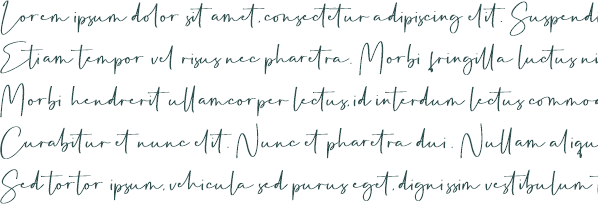 Lorem ipsum dolor sit amet, consectetur adipiscing elit. Suspendi
Etiam tempor vel risus nec pharetra. Morbi fringilla luctus ni
Morbi hendrerit ullamcorper lectus, id interdum lectus commod
Curabitur et nunc elit. Nunc et pharetra dui. Nullam aliqu
Sed tortor ipsum, vehicula sed purus eget, dignissim vestibulum